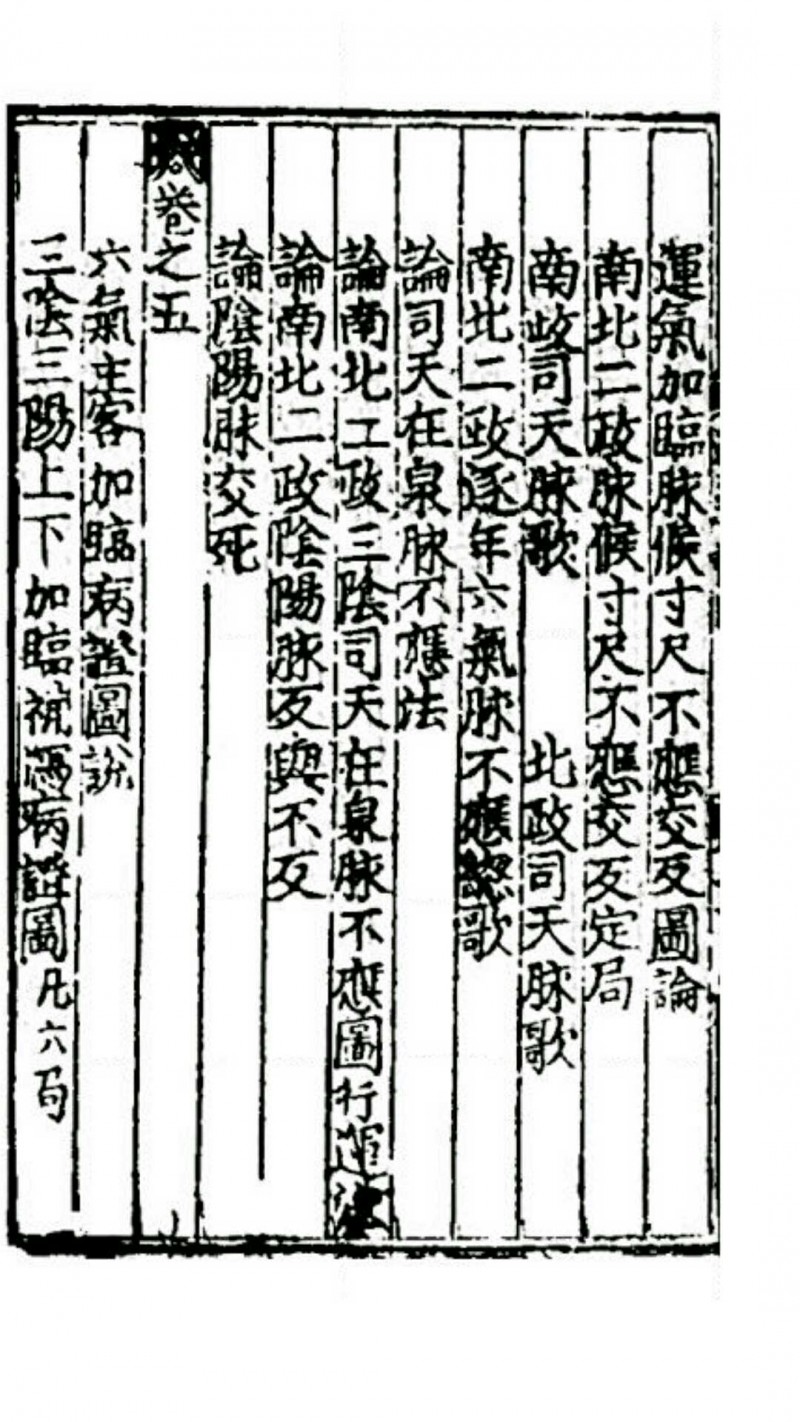 運氣加臨脉候寸尺不應交反圖論
南北二政脉候寸尺不應交反定局
南政司天脉歌 北政司天脉歌
南北二政逐年六氣脉不應歌
論司天在泉脉不應法
論南北二政三陰司天在泉脉不應圖行運
論南北二政陰陽脉反與不反
論陰陽脉交死
卷之五
六氣主客加臨病證圖說
三陰三陽上下加臨病證圖凡六局